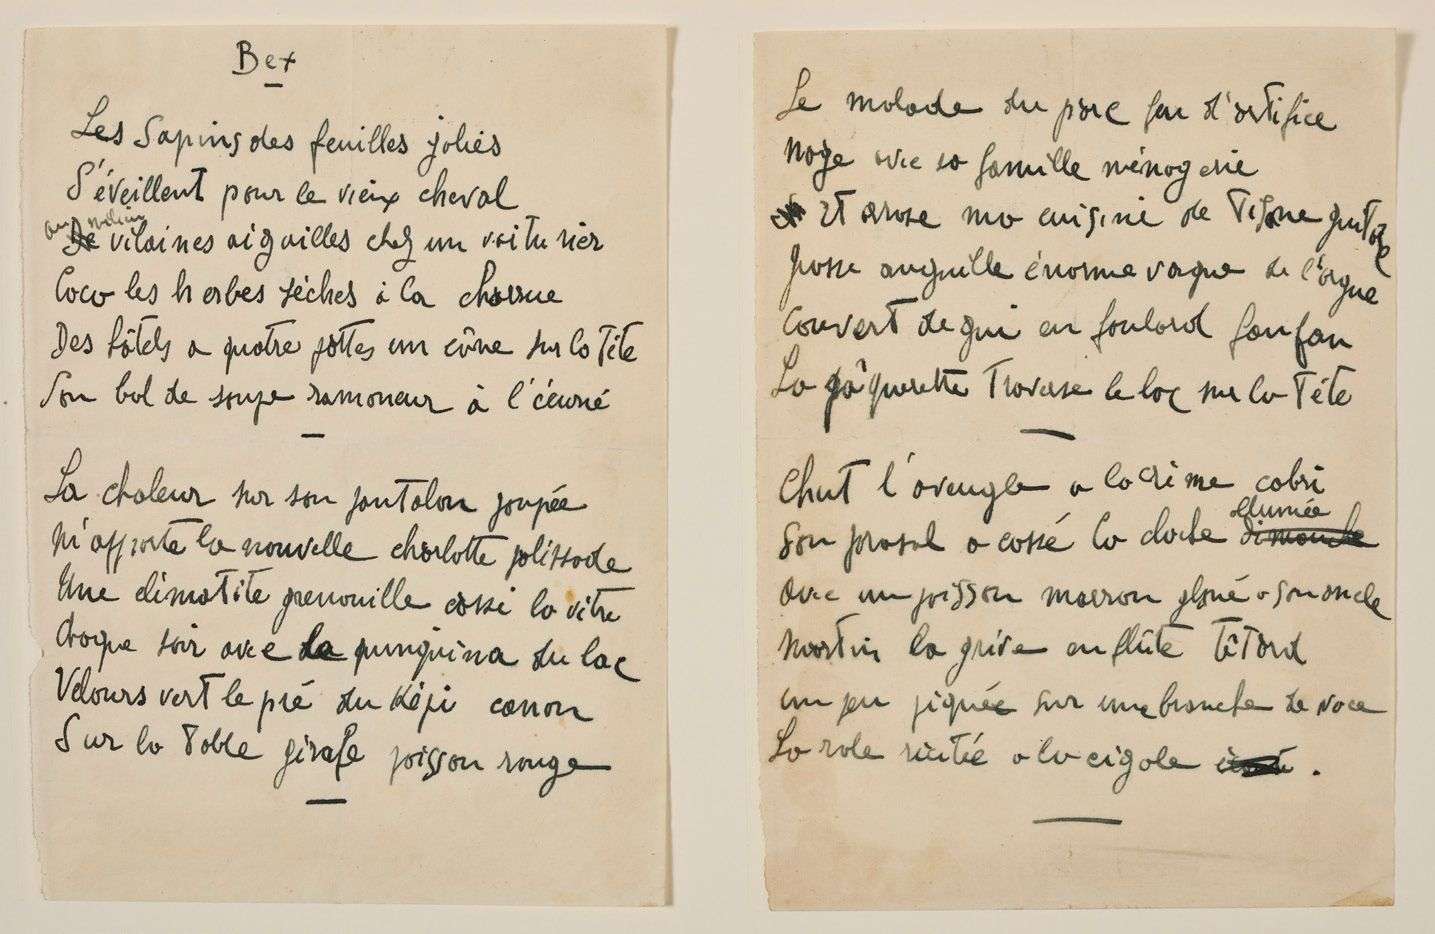 Bex
Les Sapins des feuilles jolies
S'éveillent pour le vieux cheval
au
De vilaines aiguilles chez un voiturier
Coco les herbes sèches à la charrue
Des hôtels a quatre pattes un cône sur la Tête
Son bol de soupe ramoneur à l'écurie
La chaleur sur son pantalon poupée
M'apporte la nouvelle charlotte polissade
Une climatite grenouille cassé la vitre
Chaque soir avec la punguina du lac
Velours vert le pré du Képi canon
Sur la Table girafe poisson rouge
Le malade du parc feu d'artifice
Nage avec sa famille ménagerie
Et arrose ma cuisine de Tisane
Passe anguille énorme vague de l'orgue
Couvert de gui en foulard fanfan
La pâquerette Traverse le lac sur la Tête
Chut l'aveugle a la crime cabri
allumée
Son parasol a cassé la cloche dimanche
avec un poisson marron glacé a son oncle
Martin la grive en flûte têtard
un peu piquée sur une branche de
La robe a la cigale